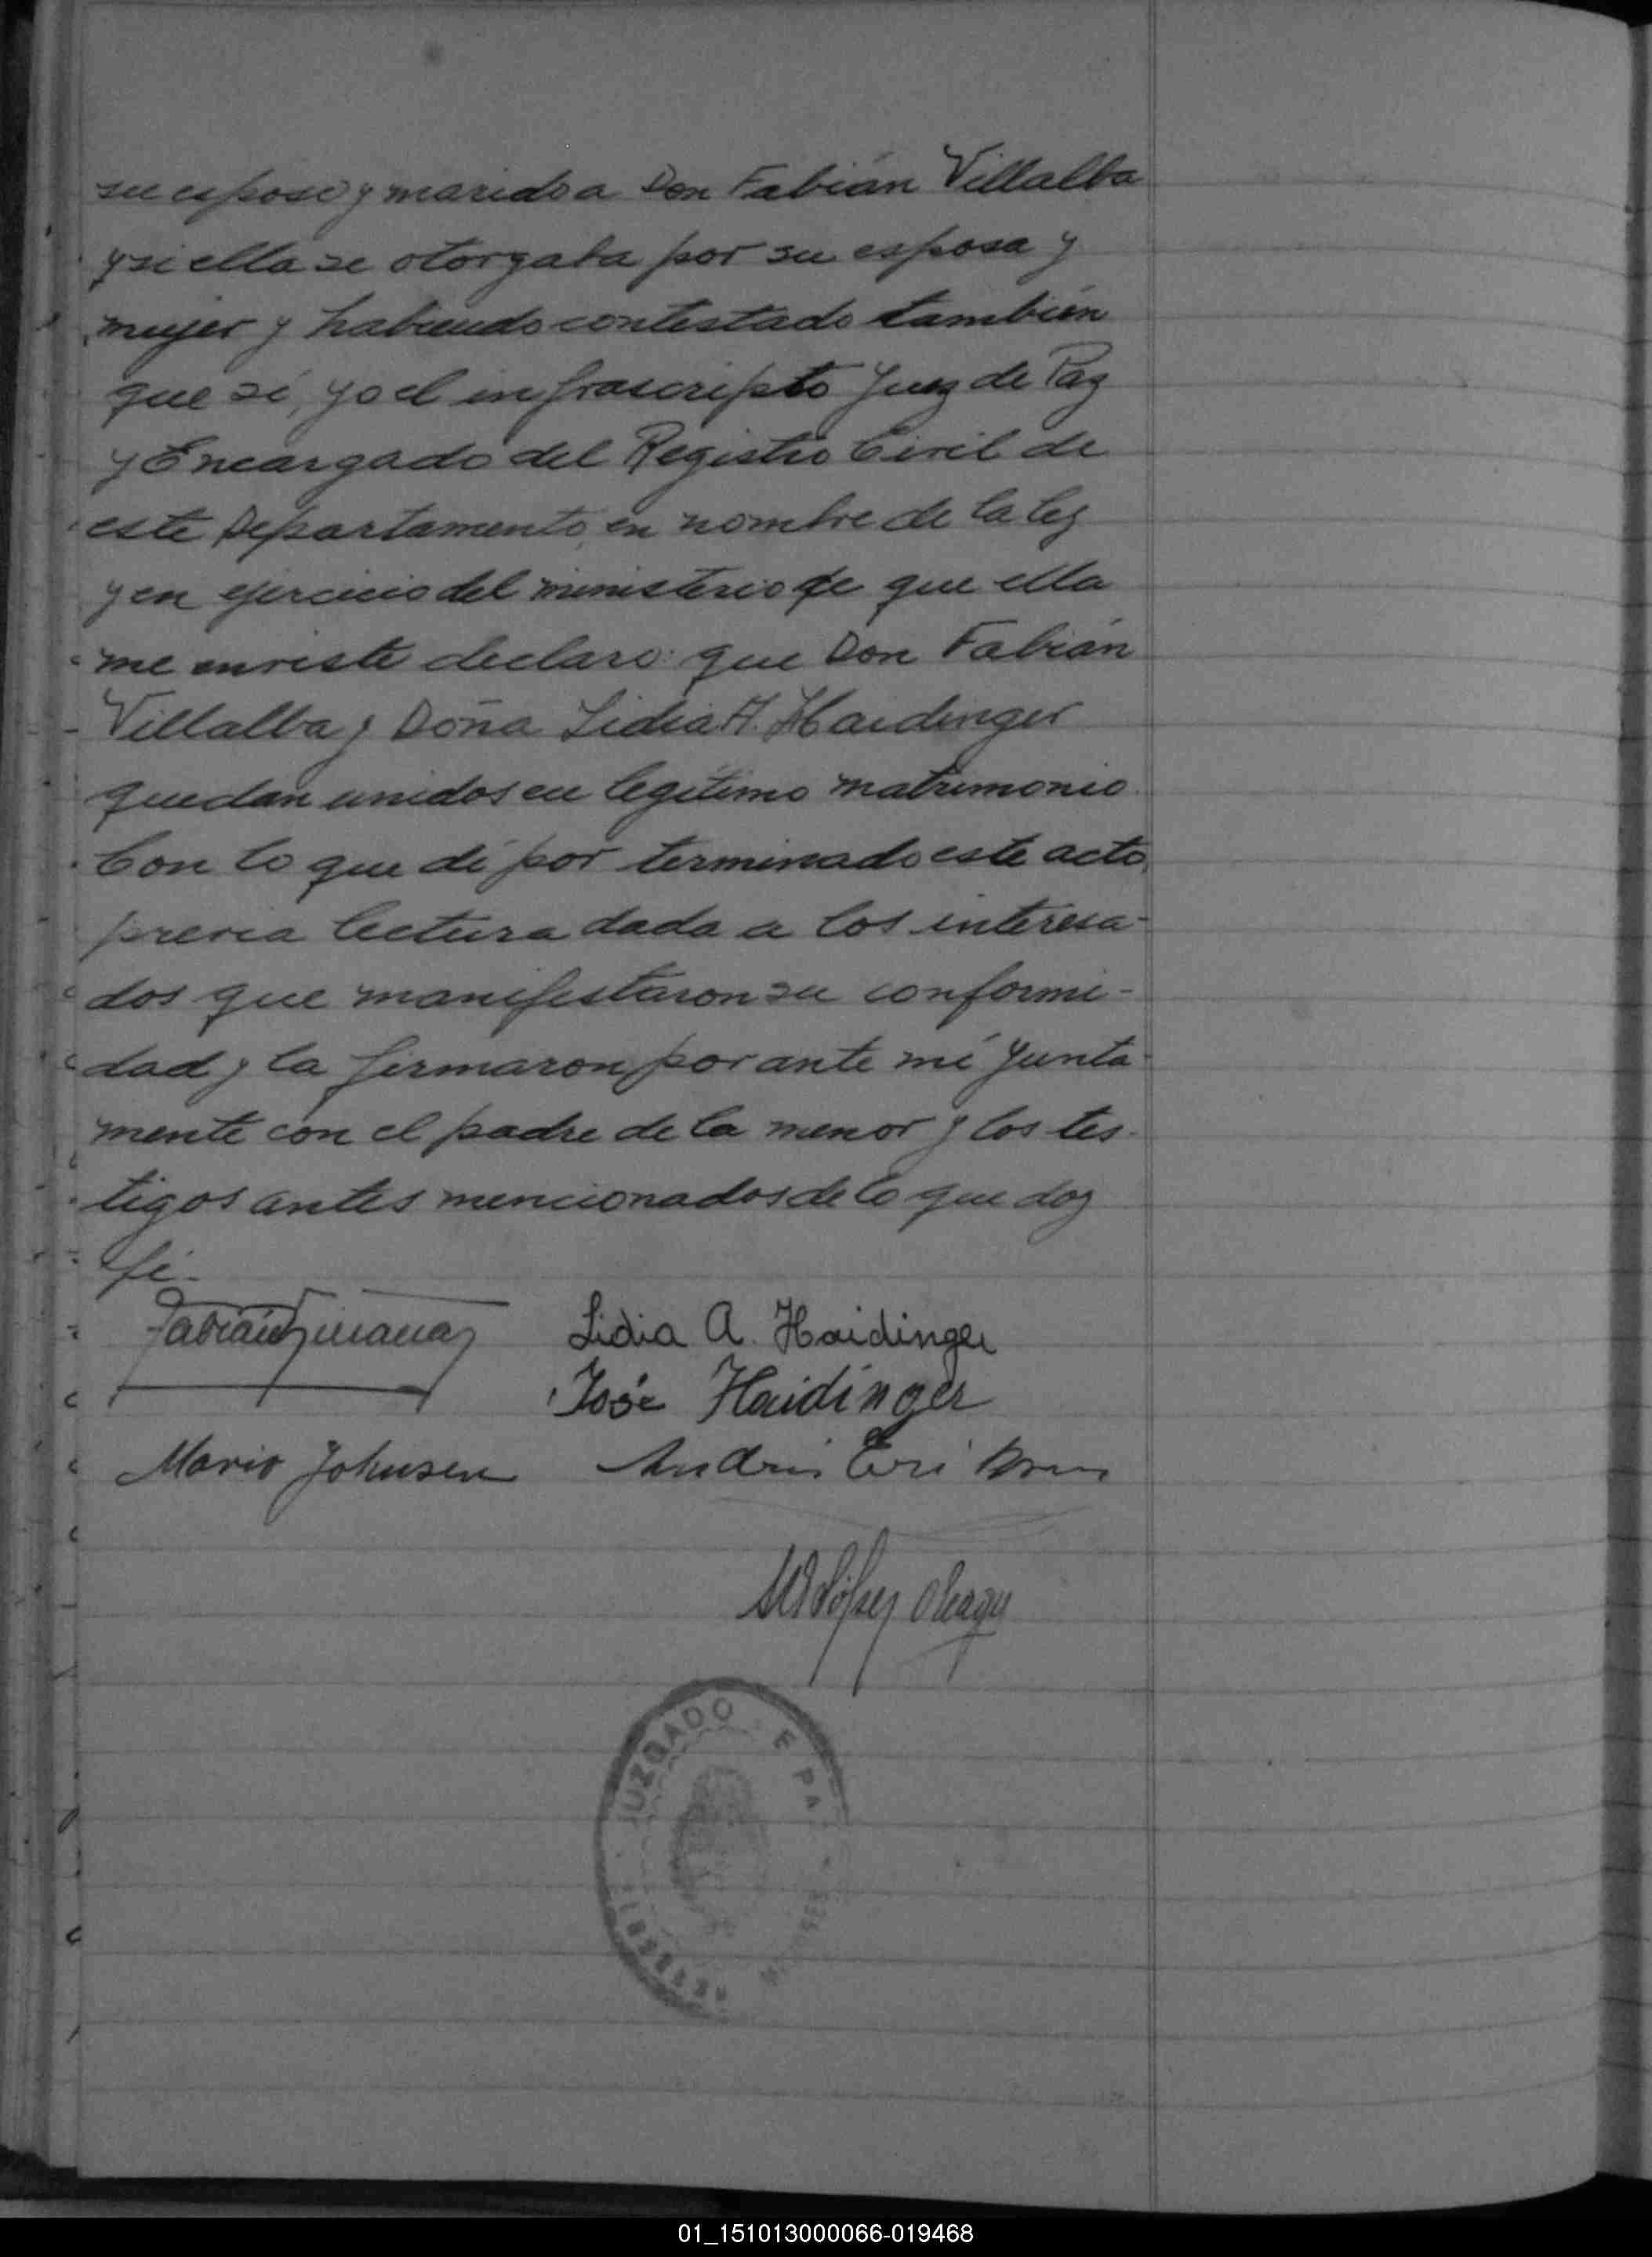 su esposo y marido a Don Fabián Villalba
y si ella se otorgaba por su esposa y
mujer y habiendo contestado también
que sí, yo el infrascripto Juez de Paz
y Encargado del Registro Civil de
este Departamento, en nombre de la ley
y en ejercicio del ministerio de que ella
me enviste declaro: que Don Fabián
Villalba y Doña Lidia A. Haidinger
quedan unidos en legítimo matrimonio.
Con lo que dí por terminado este acto,
previa lectura dada a los interesa-
dos que manifestaron su conformi-
dad y la firmaron por ante mí junta-
mente con el padre de la menor y los tes-
tigos antes mencionados de lo que doy
fé.-
Fabián
Lidia A. Haidinger
José Haidinger
Mario Johnsen
Andrés
López
JUZGADO E PA
01_151013000066-019468